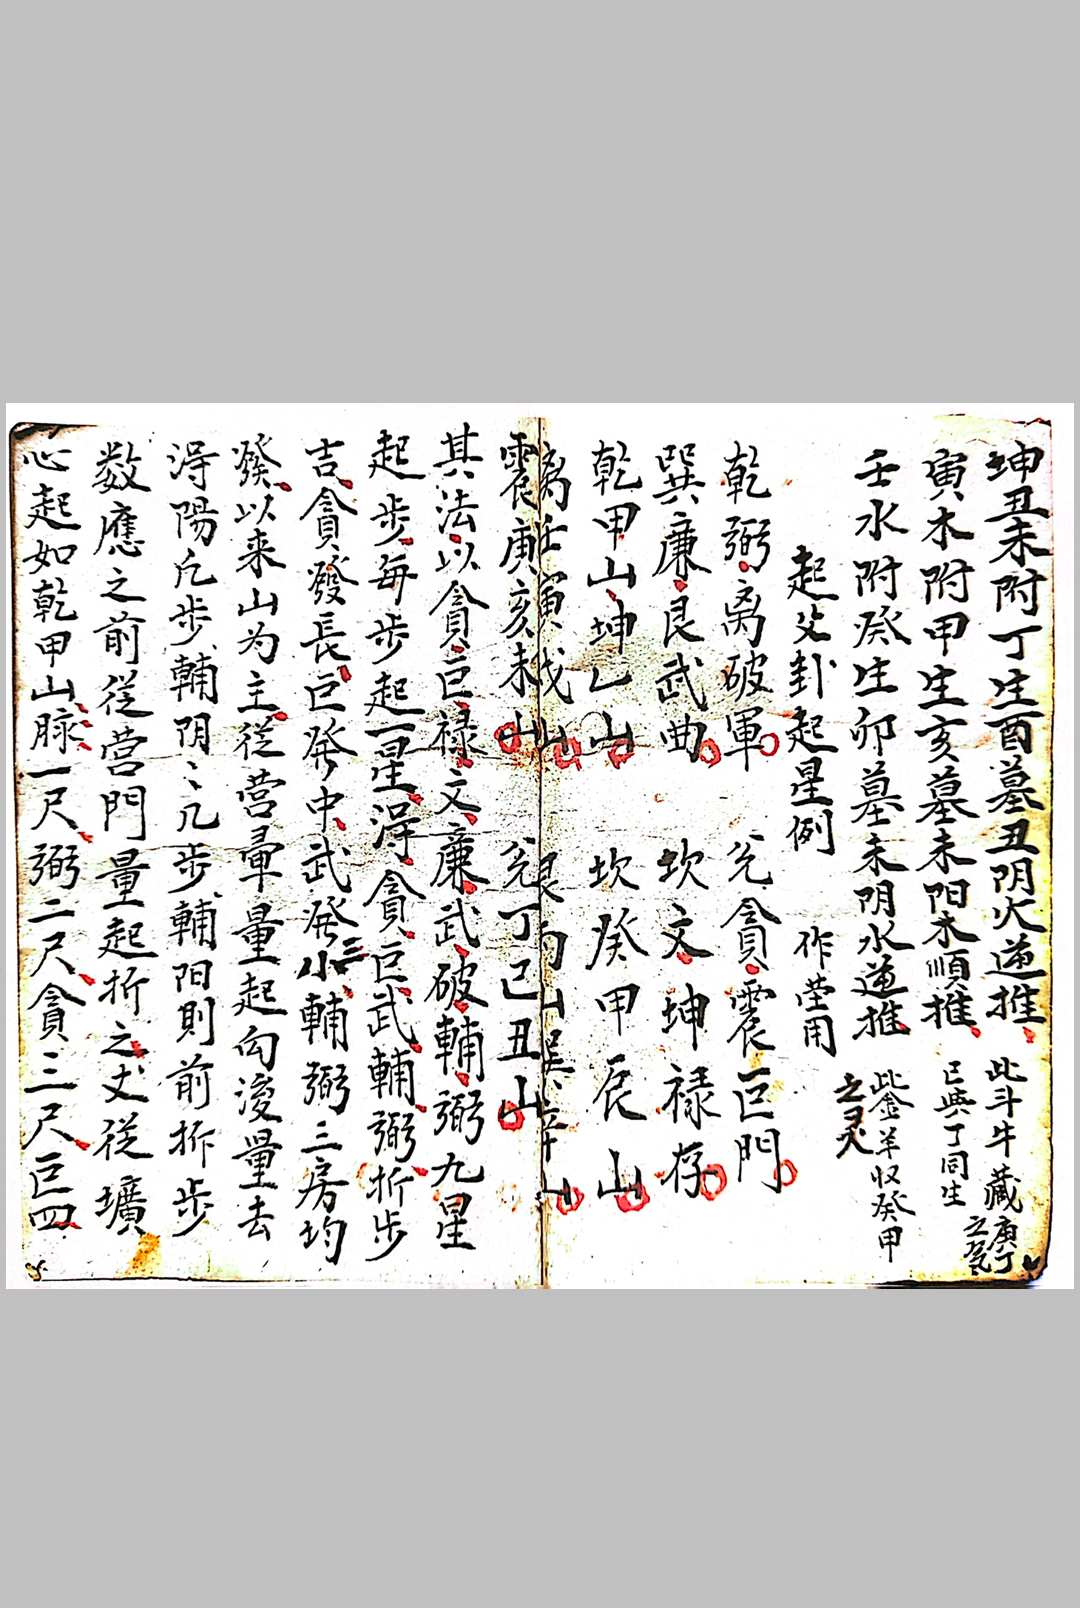 坤丑未附丁生酉墓丑阴火逆推 此斗牛藏庚丁之氣
寅木附甲生亥墓未阳木順推 已與丁同生
壬水附癸生卯墓未阴水逆推 此金羊収癸甲之灵
起父卦起星例 作茔用
乾弼离破軍 兌貪震巨門
巽廉艮武曲 坎文坤禄存
乾甲山坤乙山 坎癸甲辰山
离壬寅戌山 艮丙山巽辛山
震庚亥未山 兌丁已丑山
其法以貪巨禄文廉武破輔弼九星
起步每步起一星淂貪巨武輔弼折步
吉貪發長巨癸中武癸小三輔弼三房均
發以来山为主從营暈量起向後量去
淂陽凢步輔阴〻凢步輔阳則前折步
数應之前從营門量起折之丈從壙
心起如乾甲山脉一尺弼二尺貪三尺巨四